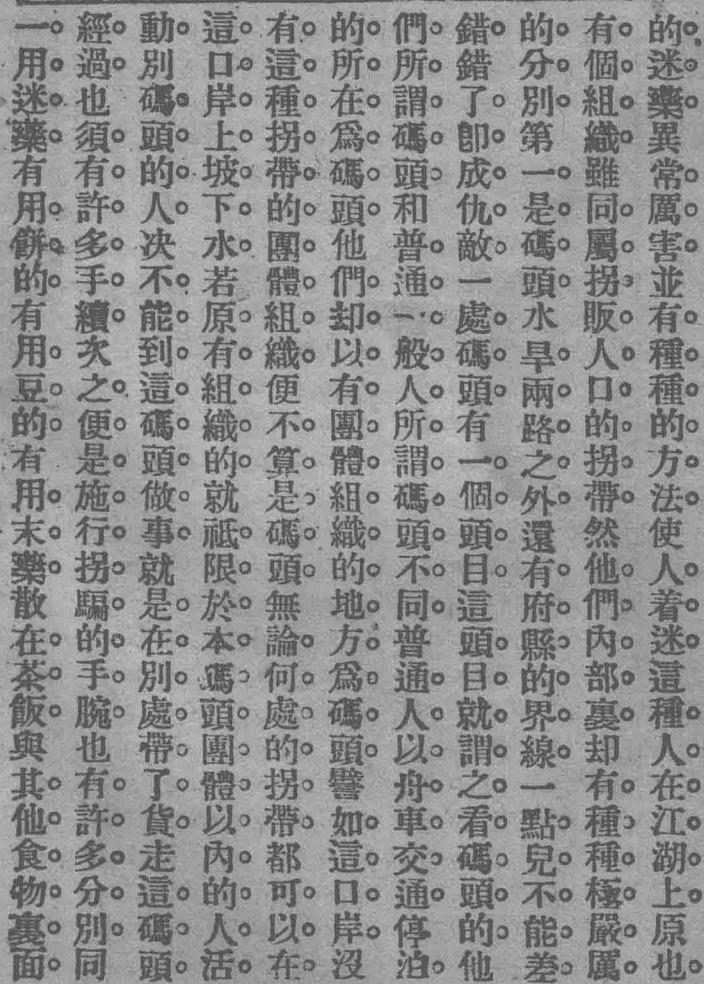 的迷藥異常厲害並有種種的方法使人着迷這種人在江湖上原也
有個組織雖同屬拐販人口的拐帶然他們內部裏却有種種極嚴厲
的分別第一是碼頭水旱兩路之外還有府縣的界線一點兒不能差
錯錯了卽成仇敵一處碼頭有一個頭目這頭目就謂之看碼頭的他
們所謂碼頭和普通一般人所謂碼頭不同普通人以舟車交通停泊
的所在爲碼頭他們却以有團體組織的地方爲碼頭譬如這口岸沒
有這種拐帶的團體組織便不算是碼頭無論何處的拐帶都可以在
這口岸上坡下水若原有組織的就祗限於本碼頭團體以內的人活
動別碼頭的人决不能到這碼頭做事就是在別處帶了貨走這碼頭
經過也須有許多手續次之便是施行拐騙的手腕也有許多分別同
一用迷藥有用餅的有用豆的有用末藥散在茶飯與其他食物裏面